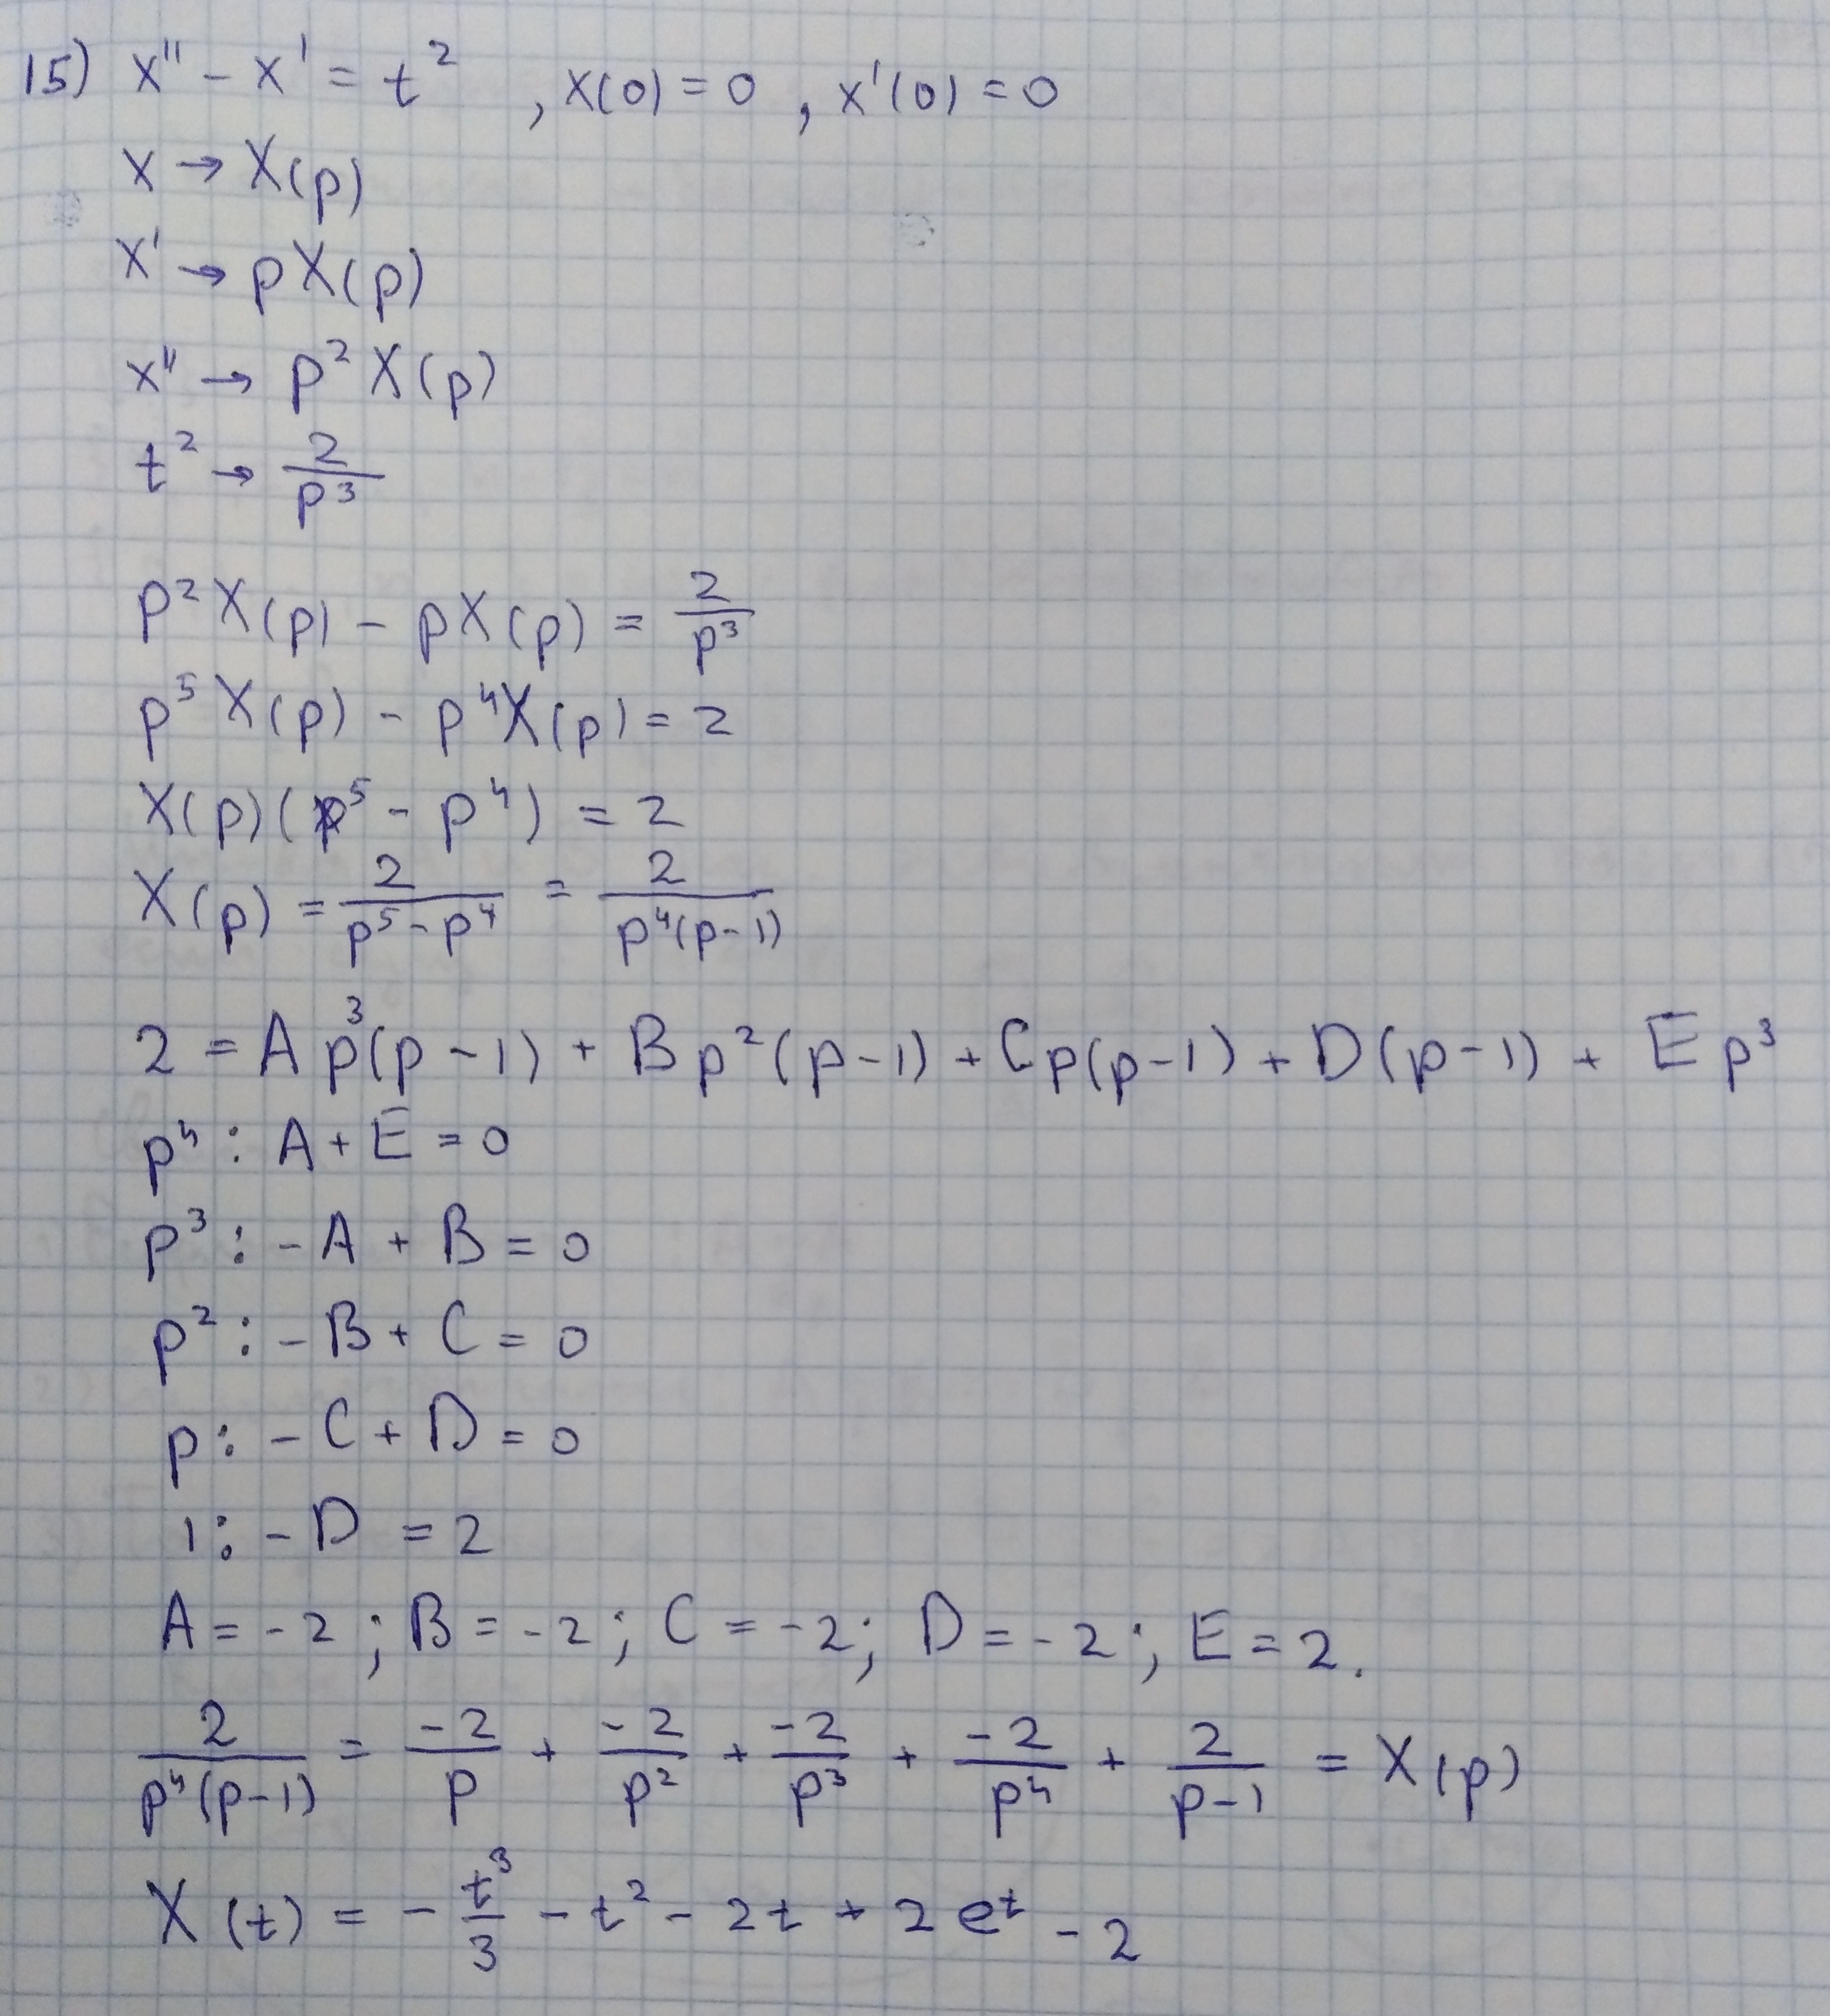 15) x'' - x' = t² , x(0) = 0 , x'(0) = 0
x → X(p)
x' → pX(p)
x'' → p²X(p)
t² → 2/p³
p²X(p) - pX(p) = 2/p³
p⁵X(p) - p⁴X(p) = 2
X(p)(p⁵ - p⁴) = 2
X(p) = 2/(p⁵ - p⁴) = 2/(p⁴(p-1))
2 = Ap³(p-1) + Bp²(p-1) + Cp(p-1) + D(p-1) + Ep³
p⁴: A + E = 0
p³: -A + B = 0
p²: -B + C = 0
p: -C + D = 0
1: -D = 2
A = -2; B = -2; C = -2; D = -2; E = 2.
2/(p⁴(p-1)) = -2/p + -2/p² + -2/p³ + -2/p⁴ + 2/(p-1) = X(p)
X(t) = -t³/3 - t² - 2t + 2eᵗ - 2